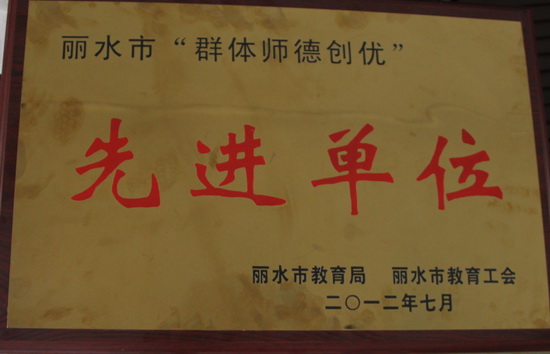 丽水市“群体师德创优”
先进单位
丽水市教育局 丽水市教育工会
二〇一二年七月